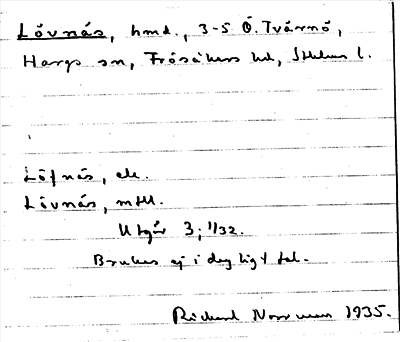 Lövnäs, hmd., 3-5 Ö. Tvärnö,
Hargs sn, Frösåkers hd, Sthlms l.
Löfnäs, ek.
Lövnäs, mtll.
Utgör 3; 1/32.
Brukas ej i dagligt tal.
Richard Norrman 1935.